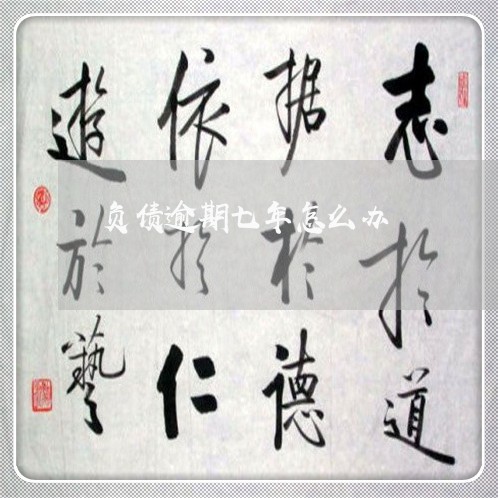 志於道
据於德
依於仁
遊於藝
负债逾期七年怎么办